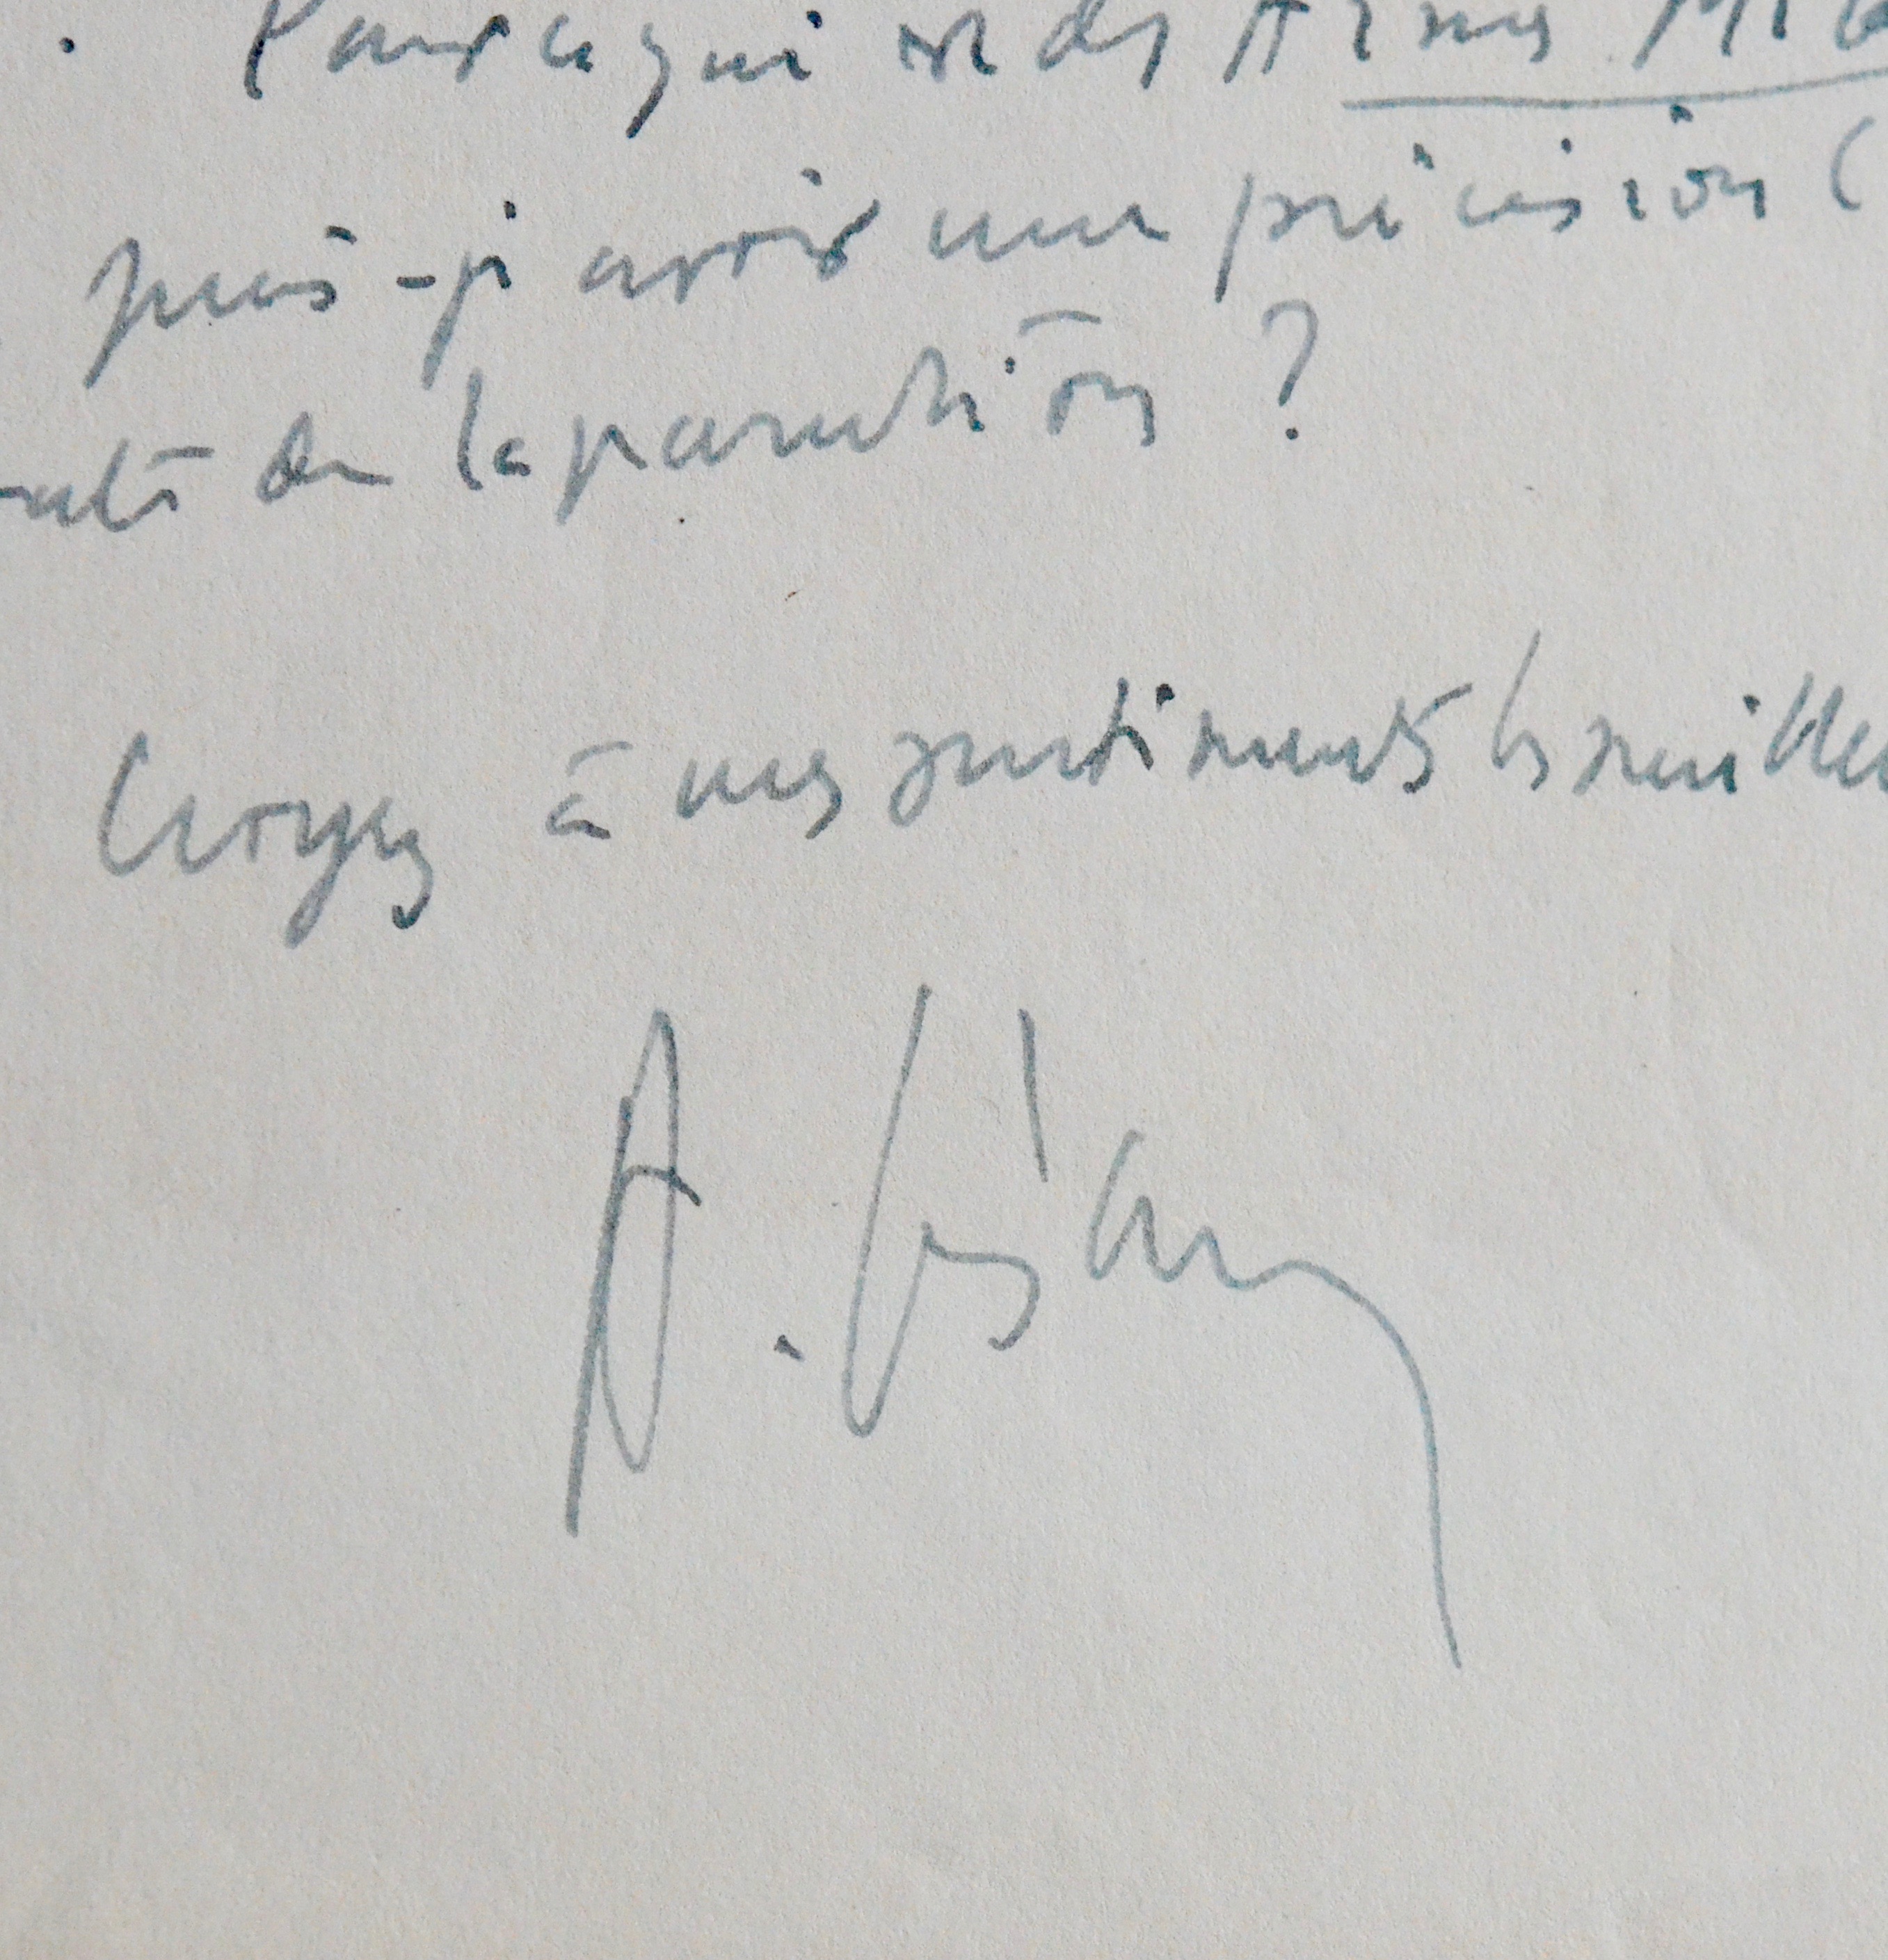 . Pour ce qui est des Armes Mira
puis-je avoir une précision (
date de la parution ?
Croyez à mes sentiments les meilleu
A. Césaire